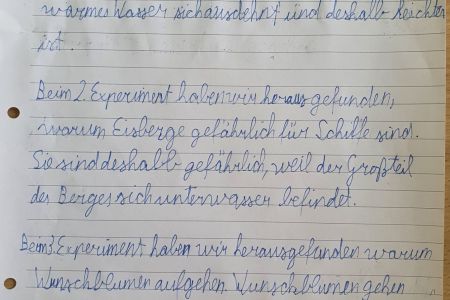 warmes Wasser sich ausdehnt und deshalb leichter
ist.
Beim 2. Experiment haben wir heraus gefunden,
warum Eisberge gefährlich für Schiffe sind.
Sie sind deshalb gefährlich, weil der Großteil
des Berges sich unterwasser befindet.
Beim 3. Experiment haben wir herausgefunden warum
Wunschblumen aufgehen. Wunschblumen gehen